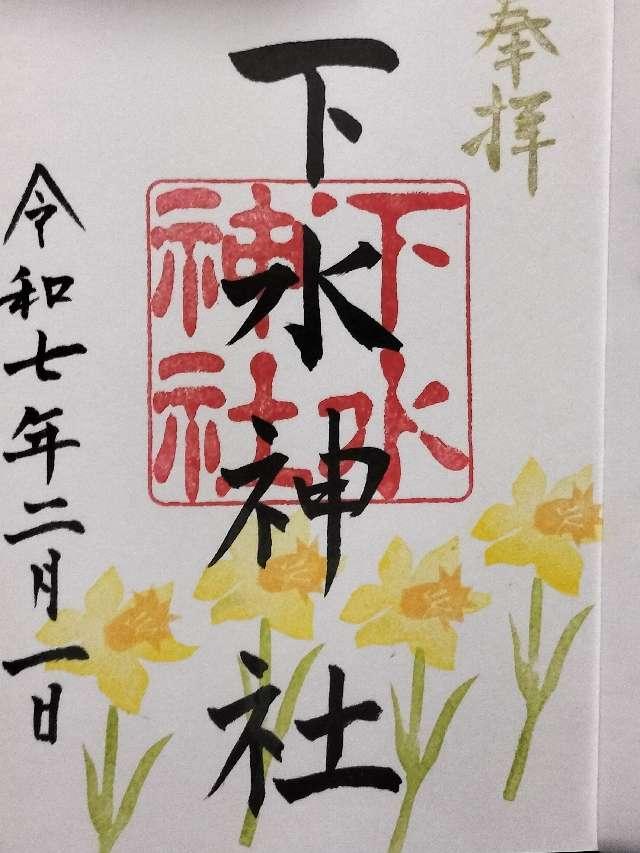 奉拝
下水神社
下水
神社
令和七年二月一日